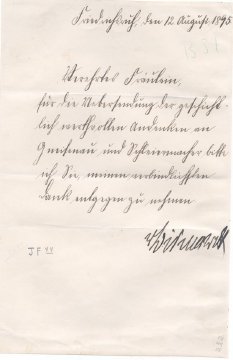 Friedrichsruh, den 12 August 1895
Verehrtes Fräulein,
für die Uebersendung der geschicht-
lich werthvollen Andenken an
Gneisenau und Schleiermacher bitte
ich Sie, meinen verbindlichsten
Dank entgegen zu nehmen
v Bismarck
JF 44